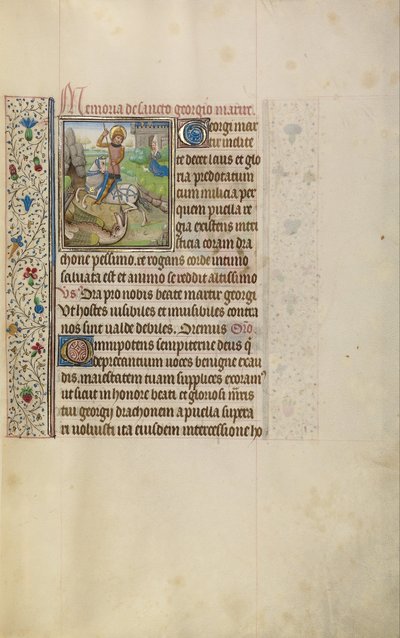 Memoria de sancto georgio martire.
Georgi mar
tir inclite
te decet laus et glo
ria predotatum
tum milicia per
quem puella re
gia existens in tri
sticia coram dra
chone pessimo. te rogans corde intimo
saluata est et animo se reddit altissimo
Vs Ora pro nobis beate martir georgi
Vt hostes uisibiles et inuisibiles contra
nos sint ualde debiles. Oremus Oro
Omnipotens sempiterne deus q
deprecantium uoces benigne exau
dis. maiestatem tuam supplices exoram
ut sicut in honore beati et gloriosi mris
tui georgij drachonem a puella supera
ri uoluisti ita eiusdem intercessione ho